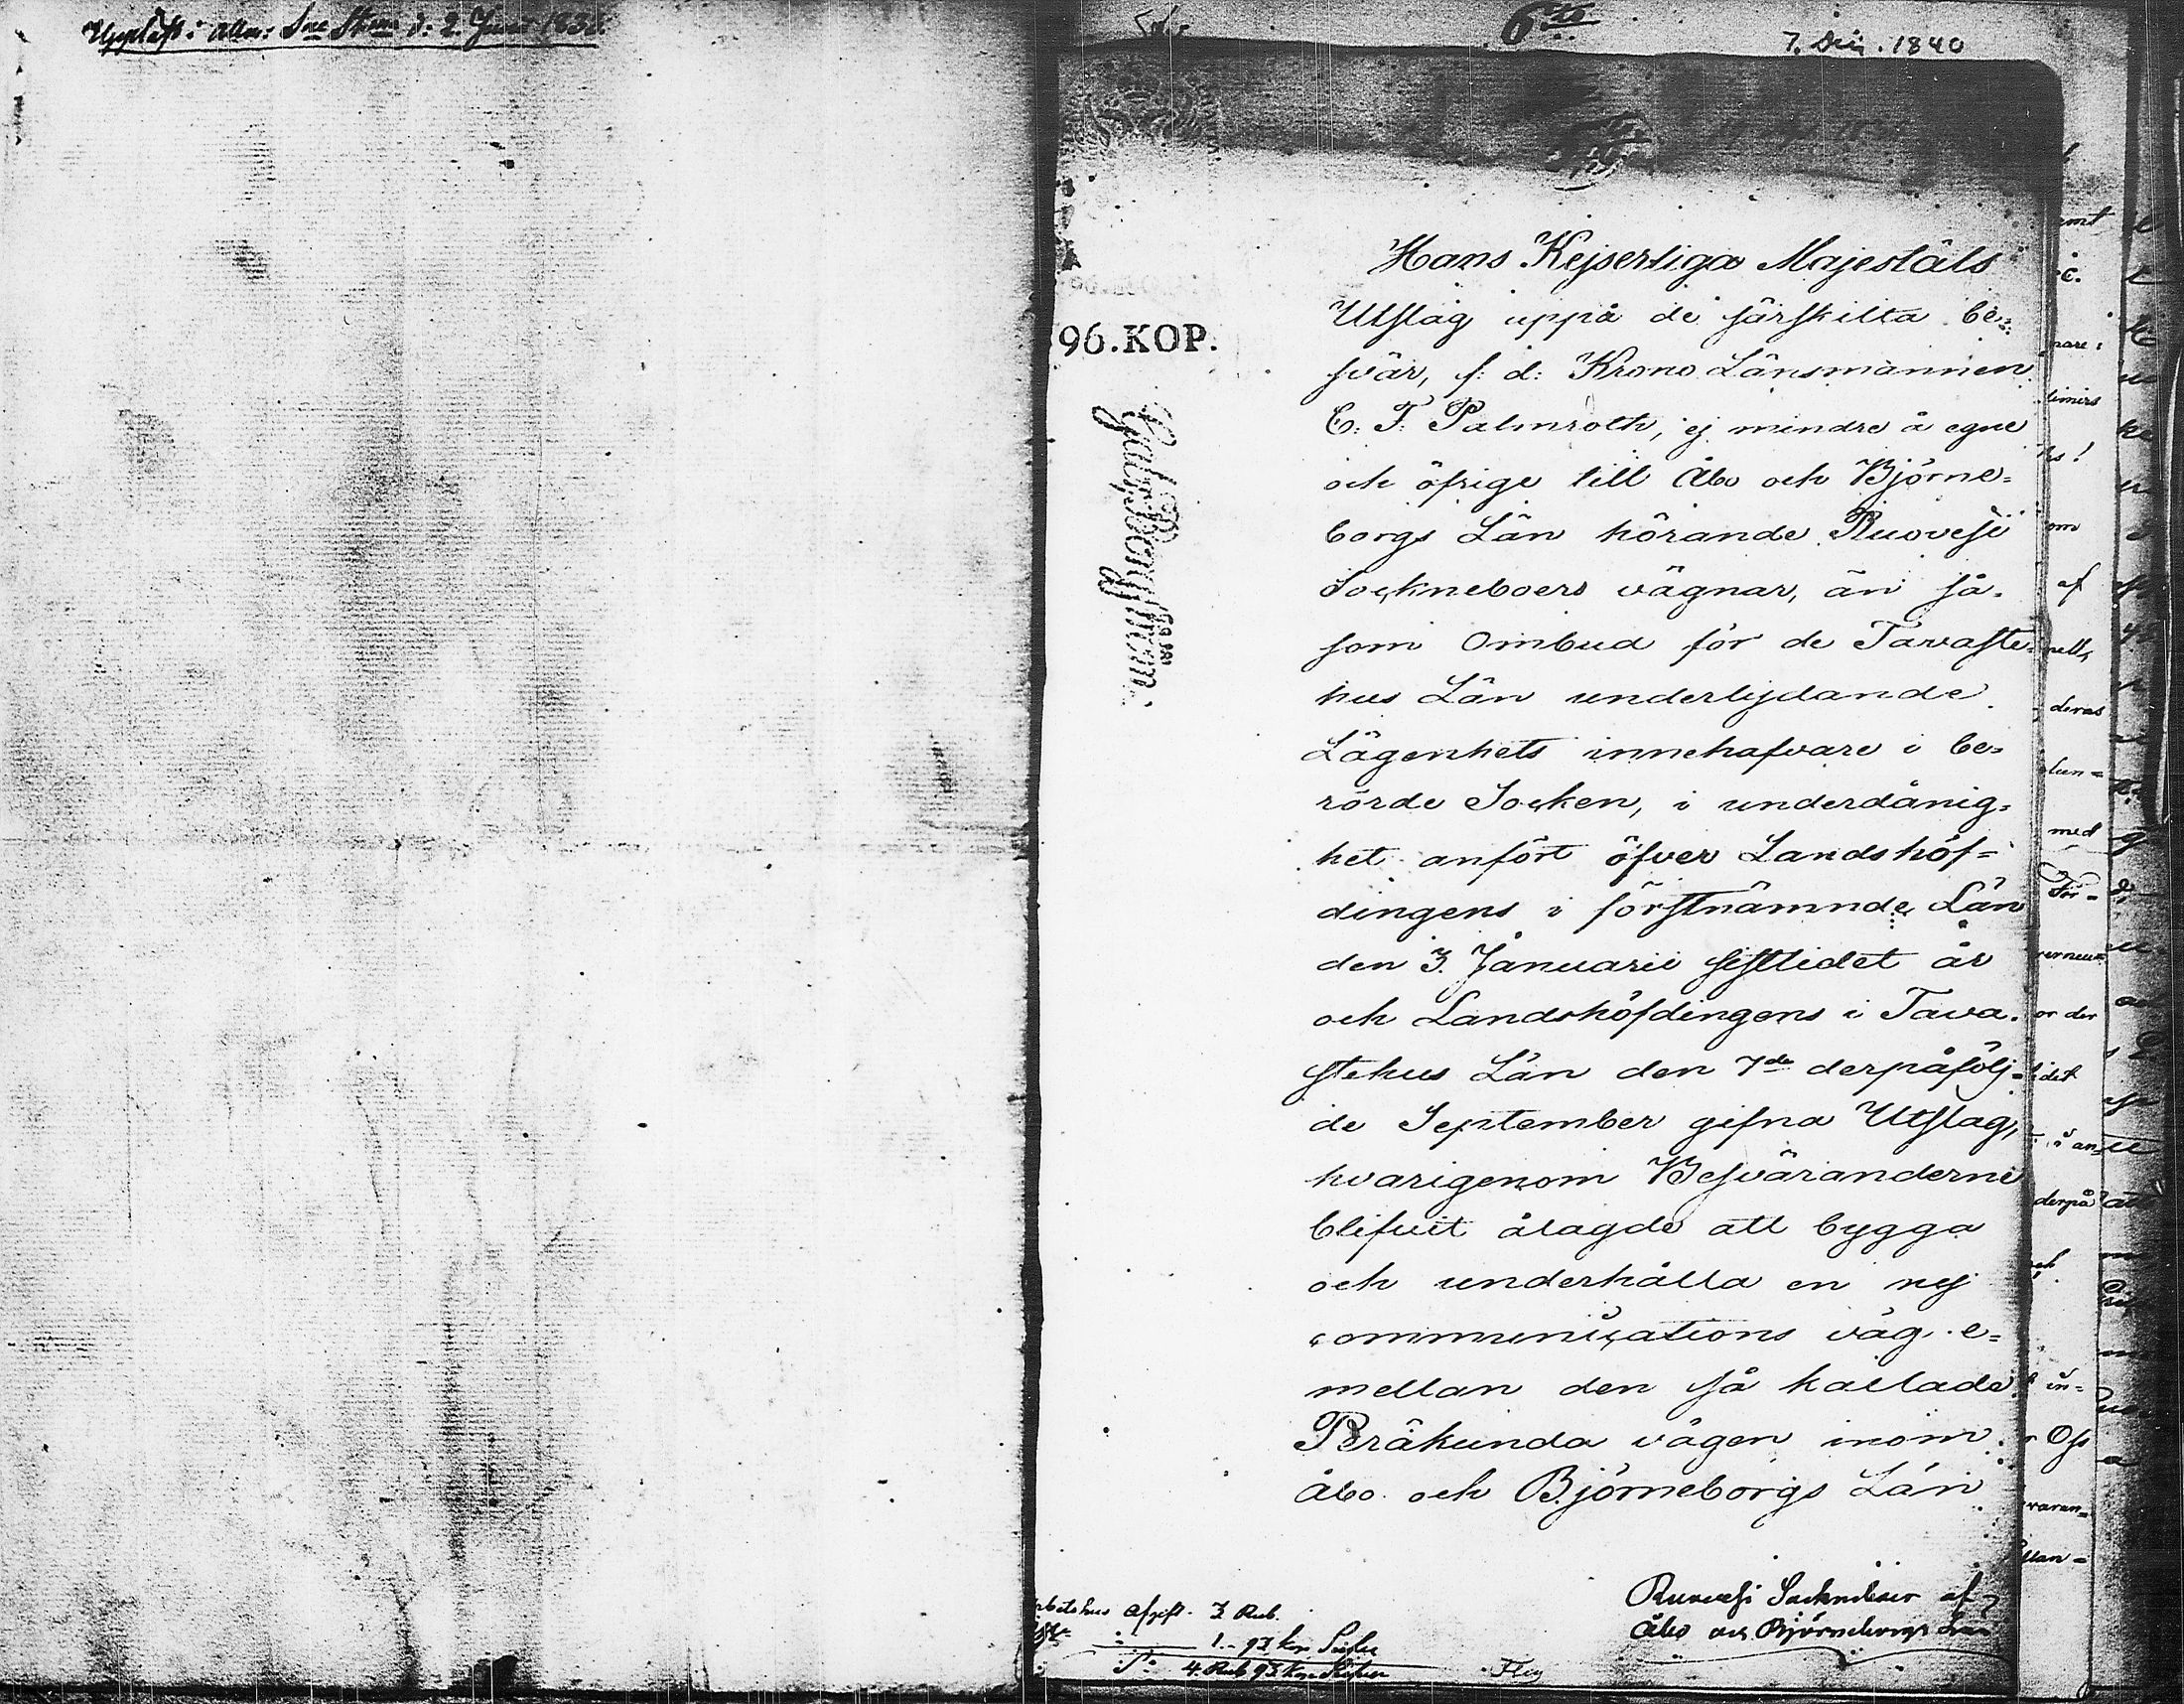 Uppläst i Allm: Sne Stwn d: 2. Juni 1832.
6te
7. Dec. 1840
96.KOP.
Hans Kejserliga Majestäts
Utslag uppå de särskilta be-
svär, f: d: Krono Länsmannen
C: F: Palmroth, ej mindre å egne
och öfrige till Åbo och Björne-
borgs Län hörande Ruovesi
Sockneboers vägnar, än så-
som Ombud för de Tavaste-
hus Län underlydande
Lägenhets innehafvare i be-
rörde Socken, i underdånig-
het anfört öfver Landshöf-
dingens i förstnämnde Län
den 3. Januarii sistlidet år
och Landshöfdingens i Tava-
stehus Län den 7de derpåfölj-
de September gifna Utslag,
hvarigenom Besväranderne
blifvit ålagde att bygga
och underhålla en ny
communications väg e-
mellan den så kallade
Peräkunda vägen inom
Åbo och Björneborgs Län
Ruovesi Sockneboer af
Åbo och Björneborgs Län
afgift. 3 Rub.
1.- 93 kop Silfver
S:a 4. Rub 93 kop Silfver